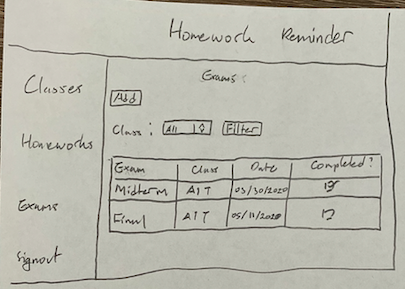 Homework Reminder
Classes
Homeworks
Exams
Signout
Exams:
Add
Class: All Filter
Exam Class Date Completed?
Midterm AIT 03/30/2020
Final AIT 05/11/2020